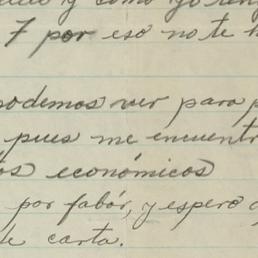 y como yo
7 por eso no te
podemos ver para
pues me encuentr
os económicos
por fabór, y espero
de carta.